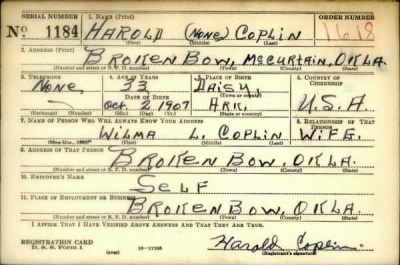 SERIAL NUMBER 1. NAME (Print) ORDER NUMBER
No 1184 HAROLD (NONE) COPLIN 1618
(First) (Middle) (Last)
2. ADDRESS (Print)
BROKEN BOW, MCCURTAIN, OKLA.
(Number and street or R. F. D. number) (Town) (County) (State)
3. TELEPHONE 4. AGE IN YEARS 5. PLACE OF BIRTH 6. COUNTRY OF CITIZENSHIP
NONE, 33 DAISY,
DATE OF BIRTH (Town or county)
OCT. 2 1907 ARK. U.S.A.
(Exchange) (Number) (Mo.) (Day) (Yr.) (State or country)
7. NAME OF PERSON WHO WILL ALWAYS KNOW YOUR ADDRESS 8. RELATIONSHIP OF THAT PERSON
WILMA L. COPLIN WIFE.
(Mr., Mrs., Miss) (First) (Middle) (Last)
9. ADDRESS OF THAT PERSON
BROKEN BOW, OKLA.
(Number and street or R. F. D. number) (Town) (County) (State)
10. EMPLOYER'S NAME
SELF
11. PLACE OF EMPLOYMENT OR BUSINESS
BROKEN BOW, OKLA.
(Number and street or R. F. D. number) (Town) (County) (State)
I AFFIRM THAT I HAVE VERIFIED ABOVE ANSWERS AND THAT THEY ARE TRUE.
REGISTRATION CARD
D. S. S. Form 1 Harold Coplin
(over) (Registrant's signature)